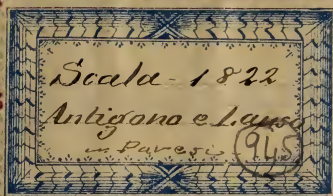 Scala - 1822
Antigono e Lauso
m. Pavesi
945